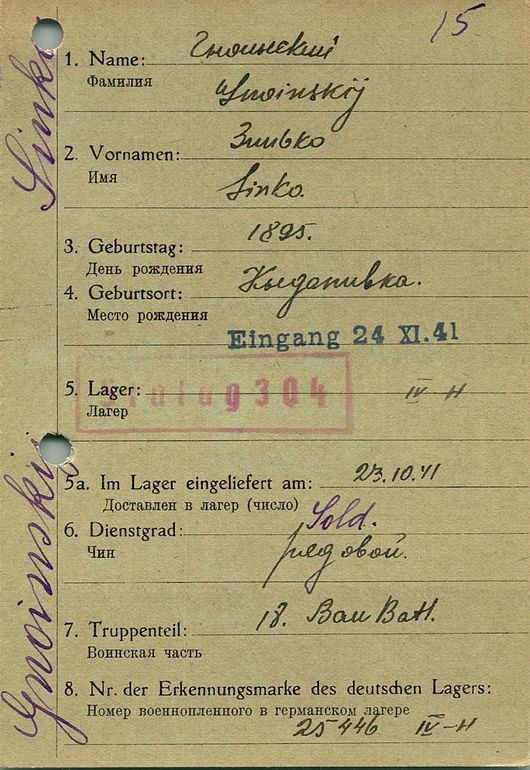 15
1. Name: Гноинский
Фамилия
Gnoinskij
2. Vornamen: Зинько
Имя
Sinko
3. Geburtstag: 1895.
День рождения
4. Geburtsort:
Место рождения
Eingang 24 XI.41
5. Lager: Stalag 304 IV H
Лагер
5a. Im Lager eingeliefert am: 23.10.41
Доставлен в лагер (число)
6. Dienstgrad: Sold.
Чин рядовой.
7. Truppenteil: 18. Bau Batl.
Воинская часть
8. Nr. der Erkennungsmarke des deutschen Lagers:
Номер военнопленного в германском лагере
25446 IV-H
Gnoinskij Sinko